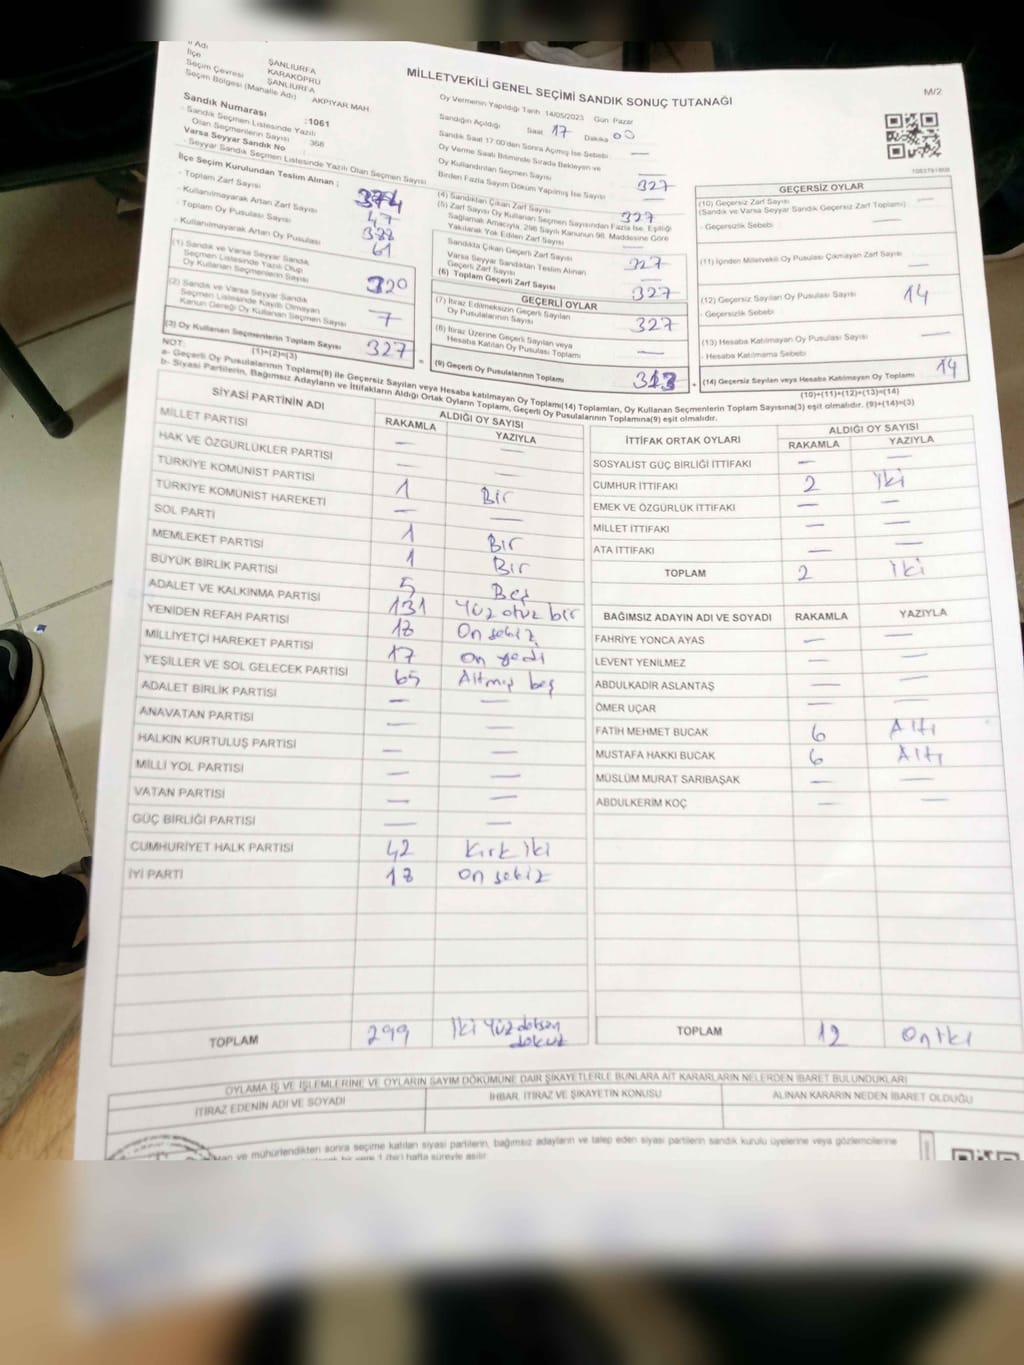 İl Adı
İlçe
Seçim Çevresi
Seçim Bölgesi (Mahalle Adı)
ŞANLIURFA
KARAKÖPRÜ
ŞANLIURFA
AKPIYAR MAH.
Sandık Numarası :1061
- Sandık Seçmen Listesinde Yazılı
Olan Seçmenlerin Sayısı : 368
Varsa Seyyar Sandık No
- Seyyar Sandık Seçmen Listesinde Yazılı Olan Seçmen Sayısı
MİLLETVEKİLİ GENEL SEÇİMİ SANDIK SONUÇ TUTANAĞI
M/2
Oy Vermenin Yapıldığı Tarih 14/05/2023 Gün Pazar
Sandığın Açıldığı Saat 17 Dakika 00
Sandık Saat 17.00'den Sonra Açmış İse Sebebi —
Oy Verme Saati Bitiminde Sırada Bekleyen ve
Oy Kullandırılan Seçmen Sayısı —
Birden Fazla Sayım Döküm Yapılmış İse Sayısı —
1083791808
İlçe Seçim Kurulundan Teslim Alınan ;
- Toplam Zarf Sayısı 374
- Kullanılmayarak Artan Zarf Sayısı 47
- Toplam Oy Pusulası Sayısı 388
- Kullanılmayarak Artan Oy Pusulası 61
(1) Sandık ve Varsa Seyyar Sandık
Seçmen Listesinde Yazılı Olup
Oy Kullanan Seçmenlerin Sayısı 320
(2) Sandık ve Varsa Seyyar Sandık
Seçmen Listesinde Kayıtlı Olmayan
Kanun Gereği Oy Kullanan Seçmen Sayısı 7
(3) Oy Kullanan Seçmenlerin Toplam Sayısı 327
(1)+(2)=(3)
(4) Sandıktan Çıkan Zarf Sayısı 327
(5) Zarf Sayısı Oy Kullanan Seçmen Sayısından Fazla İse, Eşitliği
Sağlamak Amacıyla, 298 Sayılı Kanunun 98. Maddesine Göre
Yakılarak Yok Edilen Zarf Sayısı —
327
Sandıkta Çıkan Geçerli Zarf Sayısı 327
Varsa Seyyar Sandıktan Teslim Alınan
Geçerli Zarf Sayısı —
(6) Toplam Geçerli Zarf Sayısı 327
GEÇERLİ OYLAR
(7) İtiraz Edilmeksizin Geçerli Sayılan
Oy Pusulalarının Sayısı 327
(8) İtiraz Üzerine Geçerli Sayılan veya
Hesaba Katılan Oy Pusulası Toplamı —
(9) Geçerli Oy Pusulalarının Toplamı 313
GEÇERSİZ OYLAR
(10) Geçersiz Zarf Sayısı —
(Sandık ve Varsa Seyyar Sandık Geçersiz Zarf Toplamı)
- Geçersizlik Sebebi —
(11) İçinden Milletvekili Oy Pusulası Çıkmayan Zarf Sayısı —
(12) Geçersiz Sayılan Oy Pusulası Sayısı 14
- Geçersizlik Sebebi
(13) Hesaba Katılmayan Oy Pusulası Sayısı —
- Hesaba Katılmama Sebebi
(14) Geçersiz Sayılan veya Hesaba Katılmayan Oy Toplamı 14
(10)+(11)+(12)+(13)=(14)
NOT:
a- Geçerli Oy Pusulaları Toplamı(9) ile Geçersiz Sayılan veya Hesaba katılmayan Oy Toplamı(14) Toplamları, Oy Kullanan Seçmenlerin Toplam Sayısına(3) eşit olmalıdır. (9)+(14)=(3)
b- Siyasi Partilerin, Bağımsız Adayların ve İttifakların Aldığı Ortak Oyların Toplamı, Geçerli Oy Pusulalarının Toplamına(9) eşit olmalıdır.
SİYASİ PARTİNİN ADI ALDIĞI OY SAYISI
RAKAMLA YAZIYLA
MİLLET PARTİSİ — —
HAK VE ÖZGÜRLÜKLER PARTİSİ — —
TÜRKİYE KOMÜNİST PARTİSİ 1 Bir
TÜRKİYE KOMÜNİST HAREKETİ — —
SOL PARTİ 1 Bir
MEMLEKET PARTİSİ 1 Bir
BÜYÜK BİRLİK PARTİSİ 5 Beş
ADALET VE KALKINMA PARTİSİ 131 Yüz otuz bir
YENİDEN REFAH PARTİSİ 18 On sekiz
MİLLİYETÇİ HAREKET PARTİSİ 17 on yedi
YEŞİLLER VE SOL GELECEK PARTİSİ 65 Altmış beş
ADALET BİRLİK PARTİSİ — —
ANAVATAN PARTİSİ — —
HALKIN KURTULUŞ PARTİSİ — —
MİLLİ YOL PARTİSİ — —
VATAN PARTİSİ — —
GÜÇ BİRLİĞİ PARTİSİ — —
CUMHURİYET HALK PARTİSİ 42 Kırk iki
İYİ PARTİ 18 On sekiz
TOPLAM 299 İki yüz doksan
dokuz
İTTİFAK ORTAK OYLARI ALDIĞI OY SAYISI
RAKAMLA YAZIYLA
SOSYALİST GÜÇ BİRLİĞİ İTTİFAKI — —
CUMHUR İTTİFAKI 2 iki
EMEK VE ÖZGÜRLÜK İTTİFAKI — —
MİLLET İTTİFAKI — —
ATA İTTİFAKI — —
TOPLAM 2 iki
BAĞIMSIZ ADAYIN ADI VE SOYADI RAKAMLA YAZIYLA
FAHRİYE YONCA AYAS — —
LEVENT YENİLMEZ — —
ABDULKADİR ASLANTAŞ — —
ÖMER UÇAR — —
FATİH MEHMET BUCAK 6 Altı
MUSTAFA HAKKI BUCAK 6 Altı
MÜSLÜM MURAT SARIBAŞAK — —
ABDULKERİM KOÇ — —
TOPLAM 12 Oniki
OYLAMA İŞ VE İŞLEMLERİNE VE OYLARIN SAYIM DÖKÜMÜNE DAİR ŞİKAYETLERLE BUNLARA AİT KARARLARIN NELERDEN İBARET BULUNDUKLARI
İTİRAZ EDENİN ADI VE SOYADI İHBAR, İTİRAZ VE ŞİKAYETİN KONUSU ALINAN KARARIN NEDEN İBARET OLDUĞU
ve mühürlendikten sonra seçime katılan siyasi partilerin, bağımsız adayların ve talep eden siyasi partilerin sandık kurulu üyelerine veya gözlemcilerine
bir yere 1 (bir) hafta süreyle asılır.